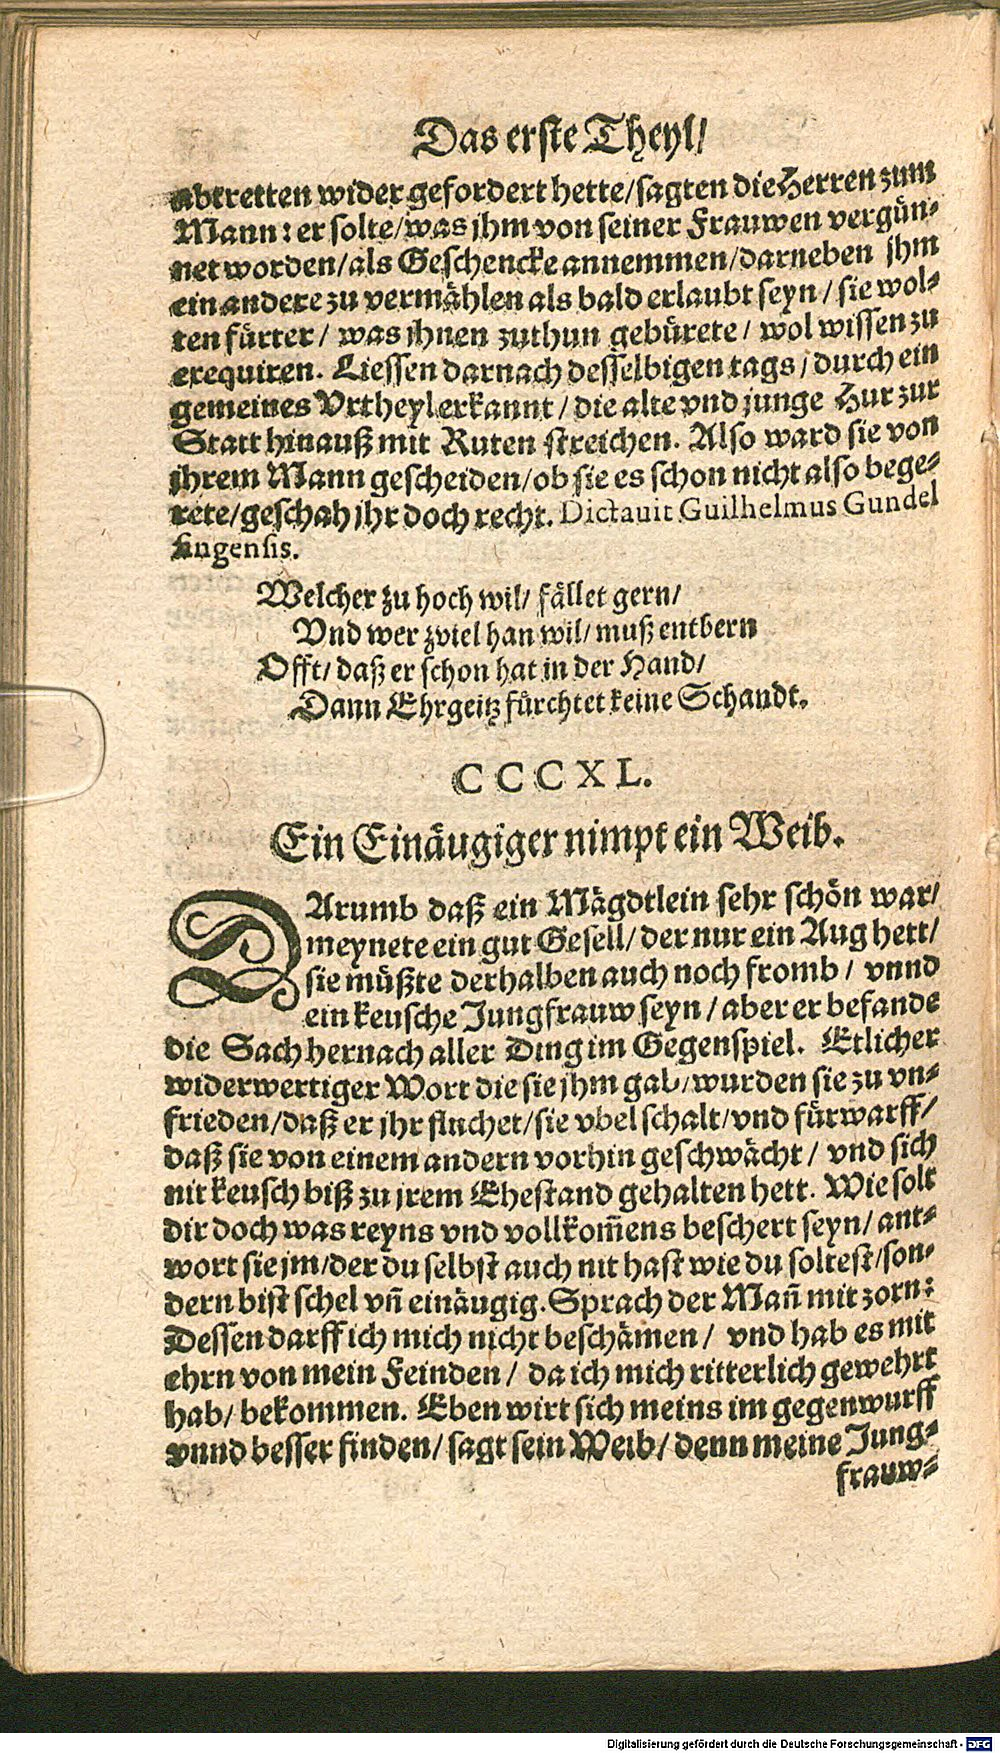 Das erste Theyl/
abtretten wider gefordert hette/sagten die Herren zum
Mann: er solte/was jhm von seiner Frauwen vergün-
net worden/als Geschencke annemmen/darneben jhm
ein andere zu vermählen als bald erlaubt seyn/ sie wol-
ten fürter/ was jhnen zuthun gebürete/ wol wissen zu
exequiren. Liessen darnach desselbigen tags/durch ein
gemeines Vrtheyl erkannt/ die alte vnd junge Hur zur
Statt hinauß mit Ruten streichen. Also ward sie von
jhrem Mann gescheiden/ob sie es schon nicht also bege-
rete/geschah jhr doch recht. Dictauit Guilhelmus Gundel
fingensis.
Welcher zu hoch wil/ fället gern/
Vnd wer zviel han wil/ muß entbern
Offt/ daß er schon hat in der Hand/
Dann Ehrgeitz fürchtet keine Schandt.
CCCXL.
Ein Einäugiger nimpt ein Weib.
DArumb daß ein Mägdtlein sehr schön war/
meynete ein gut Gesell/ der nur ein Aug hett/
sie müßte derhalben auch noch fromb/ vnnd
ein keusche Jungfrauw seyn/ aber er befande
die Sach hernach aller Ding im Gegenspiel. Etlicher
widerwertiger Wort die sie jhm gab/ wurden sie zu vn-
frieden/daß er jhr fluchet/sie vbel schalt/vnd fürwarff/
daß sie von einem andern vorhin geschwächt/ vnd sich
nit keusch biß zu jrem Ehestand gehalten hett. Wie solt
dir doch was reyns vnd vollkom̄ens beschert seyn/ ant-
wort sie jm/der du selbst auch nit hast wie du soltest/son-
dern bist schel vn̄ einäugig. Sprach der Man̄ mit zorn:
Dessen darff ich mich nicht beschämen/ vnd hab es mit
ehrn von mein Feinden/ da ich mich ritterlich gewehrt
hab/ bekommen. Eben wirt sich meins im gegenwurff
vnnd besser finden/ sagt sein Weib/ denn meine Jung-
frauw-
Digitalisierung gefördert durch die Deutsche Forschungsgemeinschaft - DFG